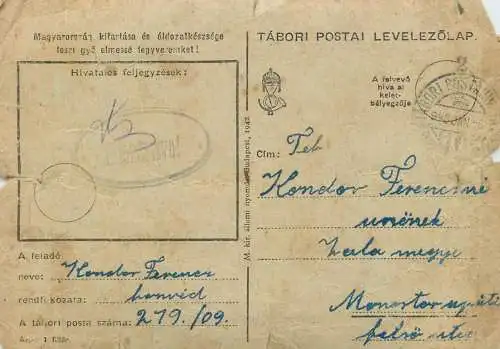 Magyarország kitartása és áldozatkészsége
teszi győzelmessé fegyvereinket!
Hivatalos feljegyzések:
A feladó
neve: Kondor Ferencz
rendf. kozata: honvéd
A tábori posta száma: 219./09.
M. kir. állami nyomda, Budapest, 1942
TÁBORI POSTAI LEVELEZŐLAP.
A felvevő
hiva al
kelet-
bélyegzője
TÁBORI POSTA
Cím: Tek
Kondor Ferencné
urnőnek
Zala megye
felső utca